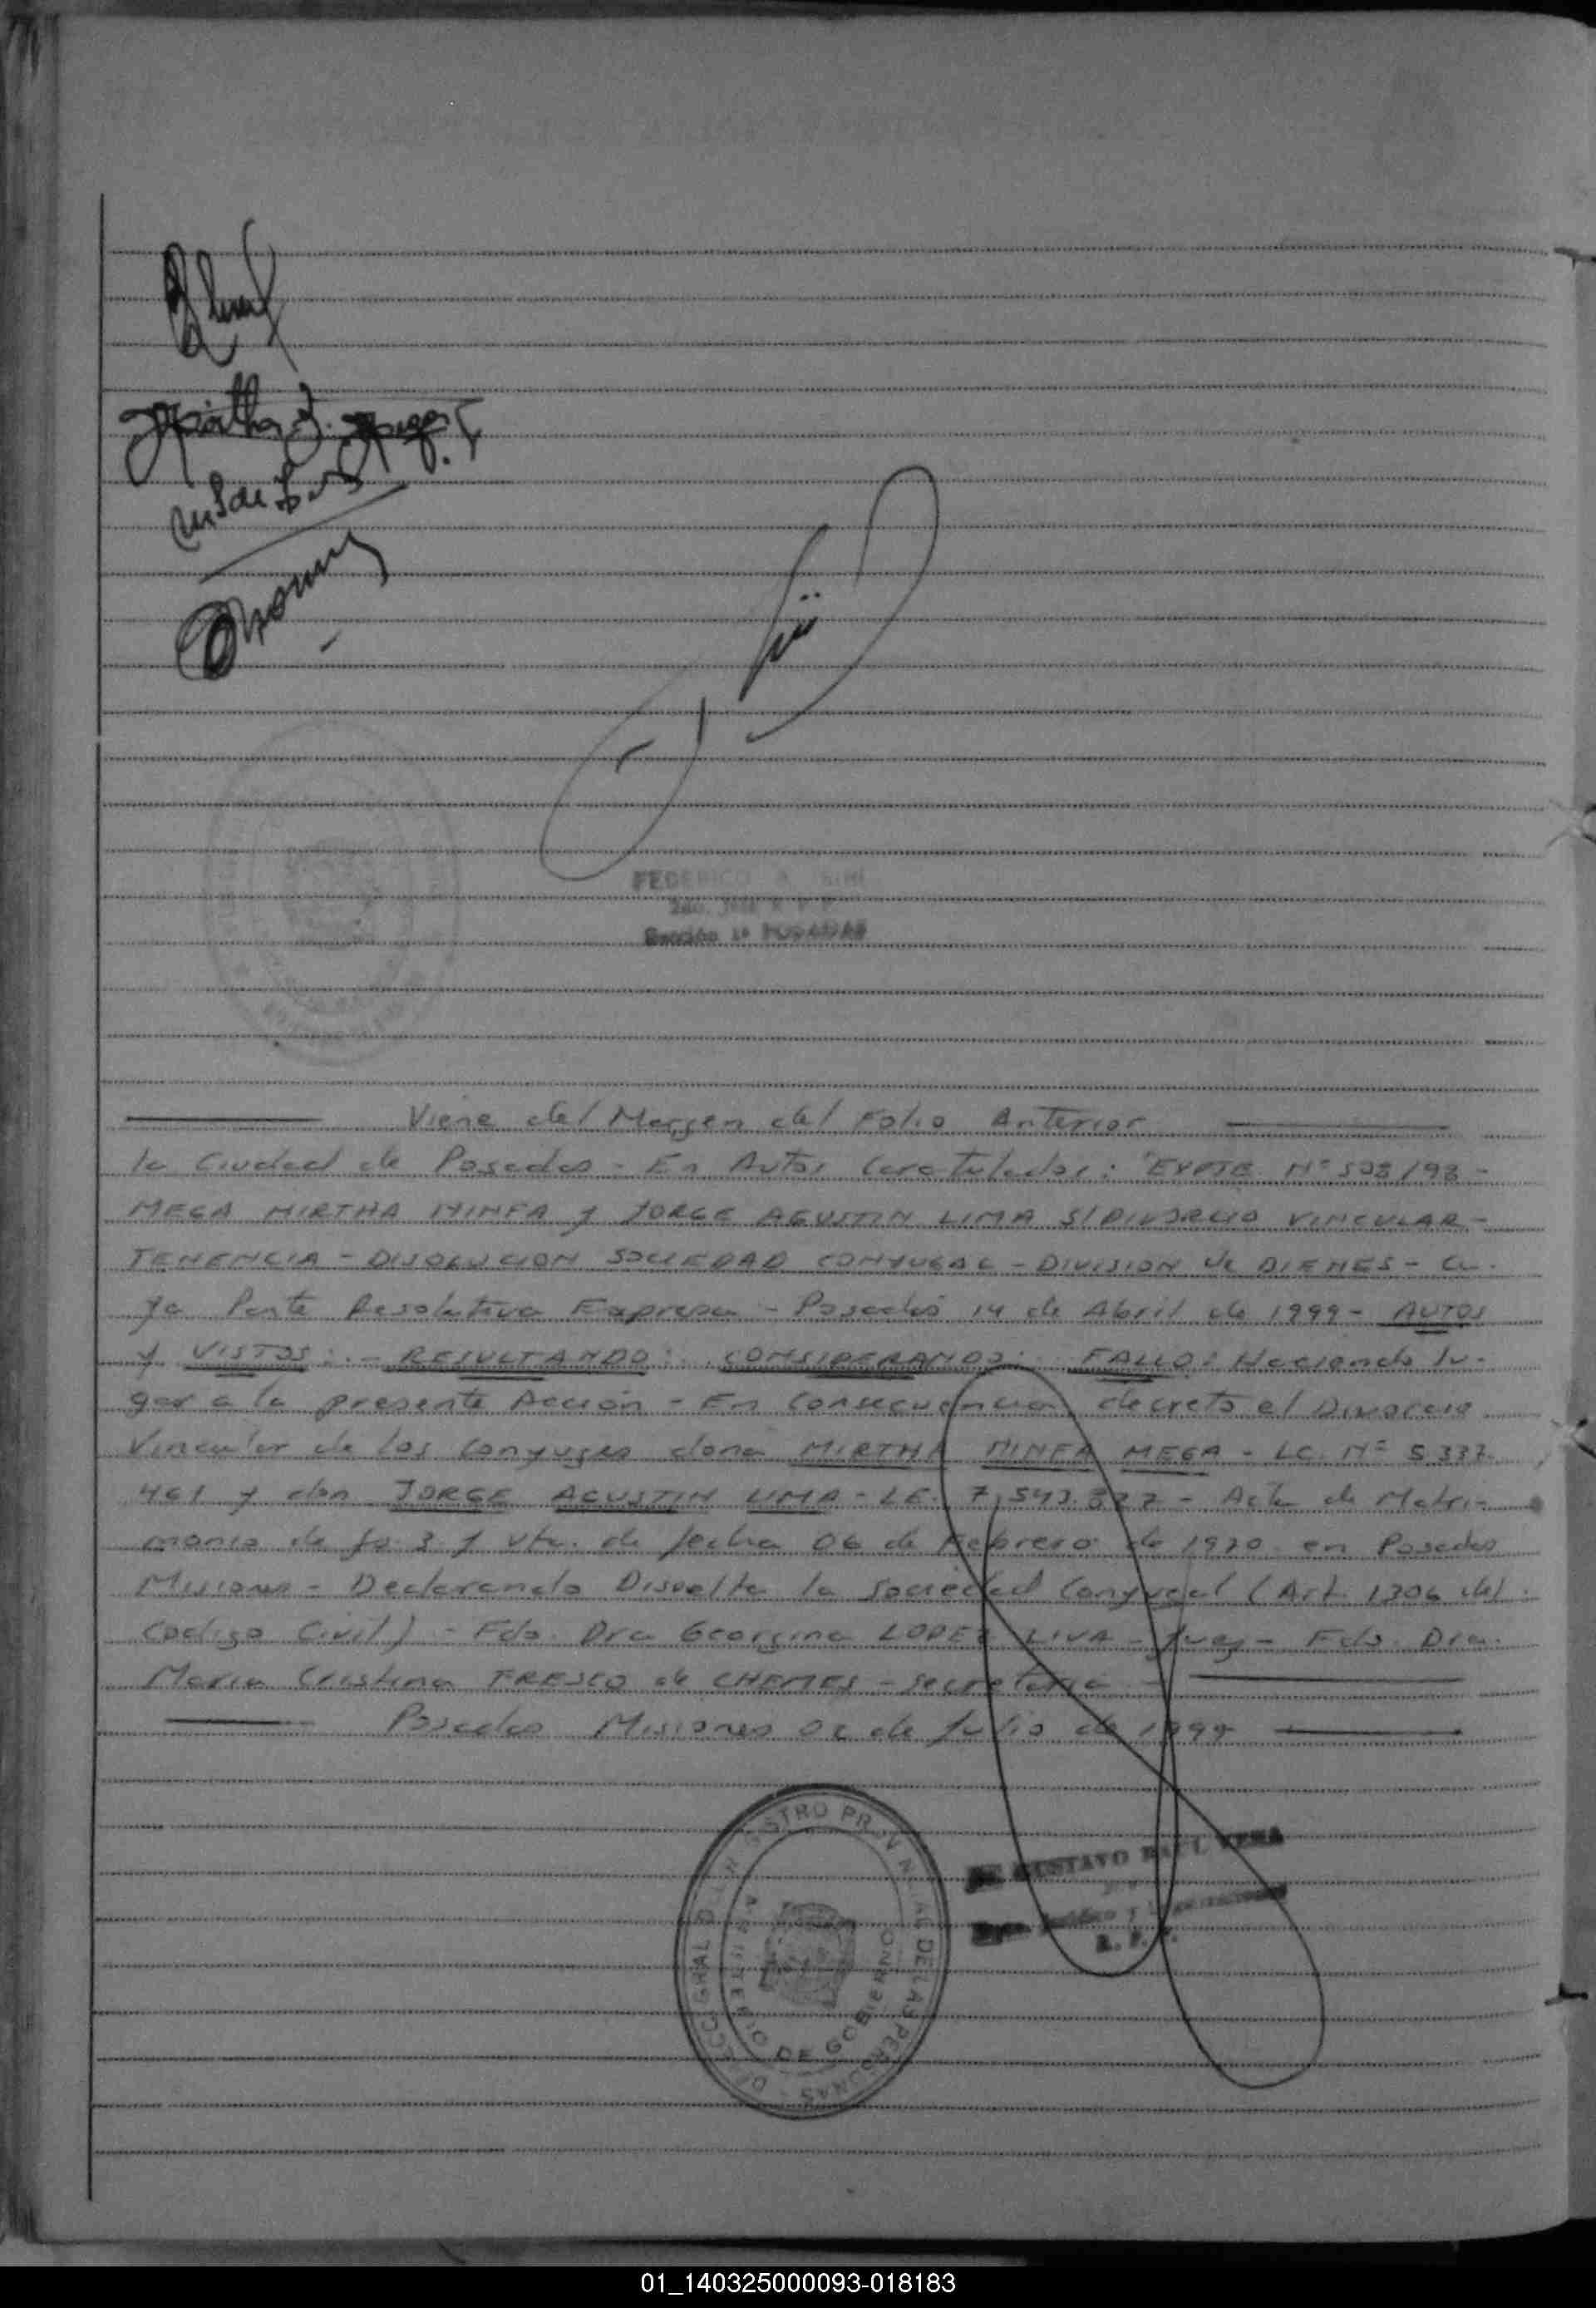 Mirtha N. Mega
FEDERICO A. SIRI
Sección 1ª POSADAS
Viene del Margen del Folio Anterior
la Ciudad de Posadas - En Autos Caratulados: "EXPTE Nº 503/98 -
MEGA MIRTHA NINFA y JORGE AGUSTIN LIMA S/DIVORCIO VINCULAR -
TENENCIA - DISOLUCION SOCIEDAD CONYUGAL - DIVISION de BIENES - Cu-
ya Parte Resolutiva Expresa - Posadas 14 de Abril de 1999 - AUTOS
y VISTOS: - RESULTANDO: CONSIDERANDO: FALLO: Haciendo lu-
gar a la presente Acción - En Consecuencia decreto el Divorcio
Vincular de los Conyuges doña MIRTHA NINFA MEGA - LC. Nº 5.337.
461 y don JORGE AGUSTIN LIMA - LE. 7.543. - Acta de Matri-
monio de fs. 3 y vta. de fecha 06 de Febrero de 1970 en Posadas
Misiones - Declarando Disuelta la Sociedad Conyugal (Art. 1306 del
Codigo Civil) - Fdo. Dra Georgina LOPEZ LIVA - Juez - Fdo. Dra.
Maria Cristina FRESCO de CHEMES - Secretaria -
Posadas Misiones 02 de Julio de 1999
DIRECC. GRAL. DEL REGISTRO PROVINCIAL DE LAS PERSONAS
MINISTERIO DE GOBIERNO
GUSTAVO RAUL VERA
R. P. P.
01_140325000093-018183